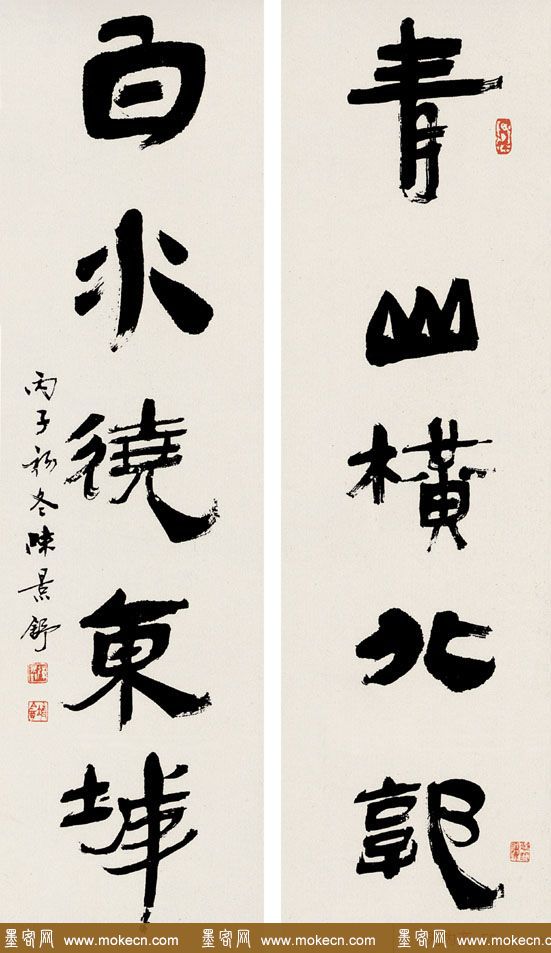 青山橫北郭
白水徺東城
丙子初冬陳景舒
墨客网 www.mokecn.com 墨客网 www.mokecn.com 墨客网 www.mokecn.com